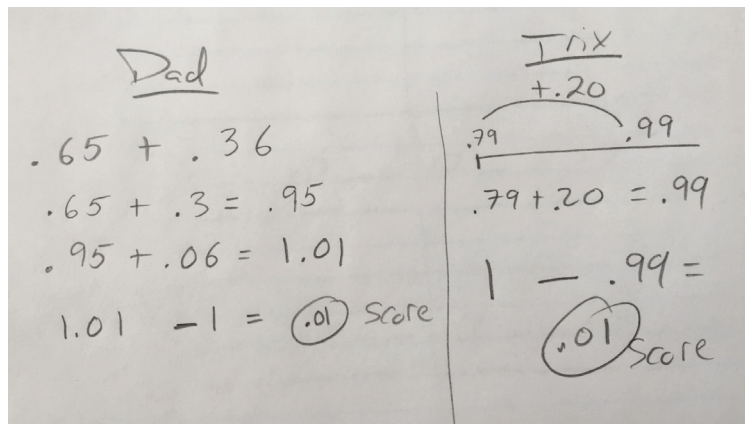 Dad
.65 + .36
.65 + .3 = .95
.95 + .06 = 1.01
1.01 - 1 = .01 Score
Trix
+.20
.79 .99
.79 + .20 = .99
1 - .99 =
.01 Score